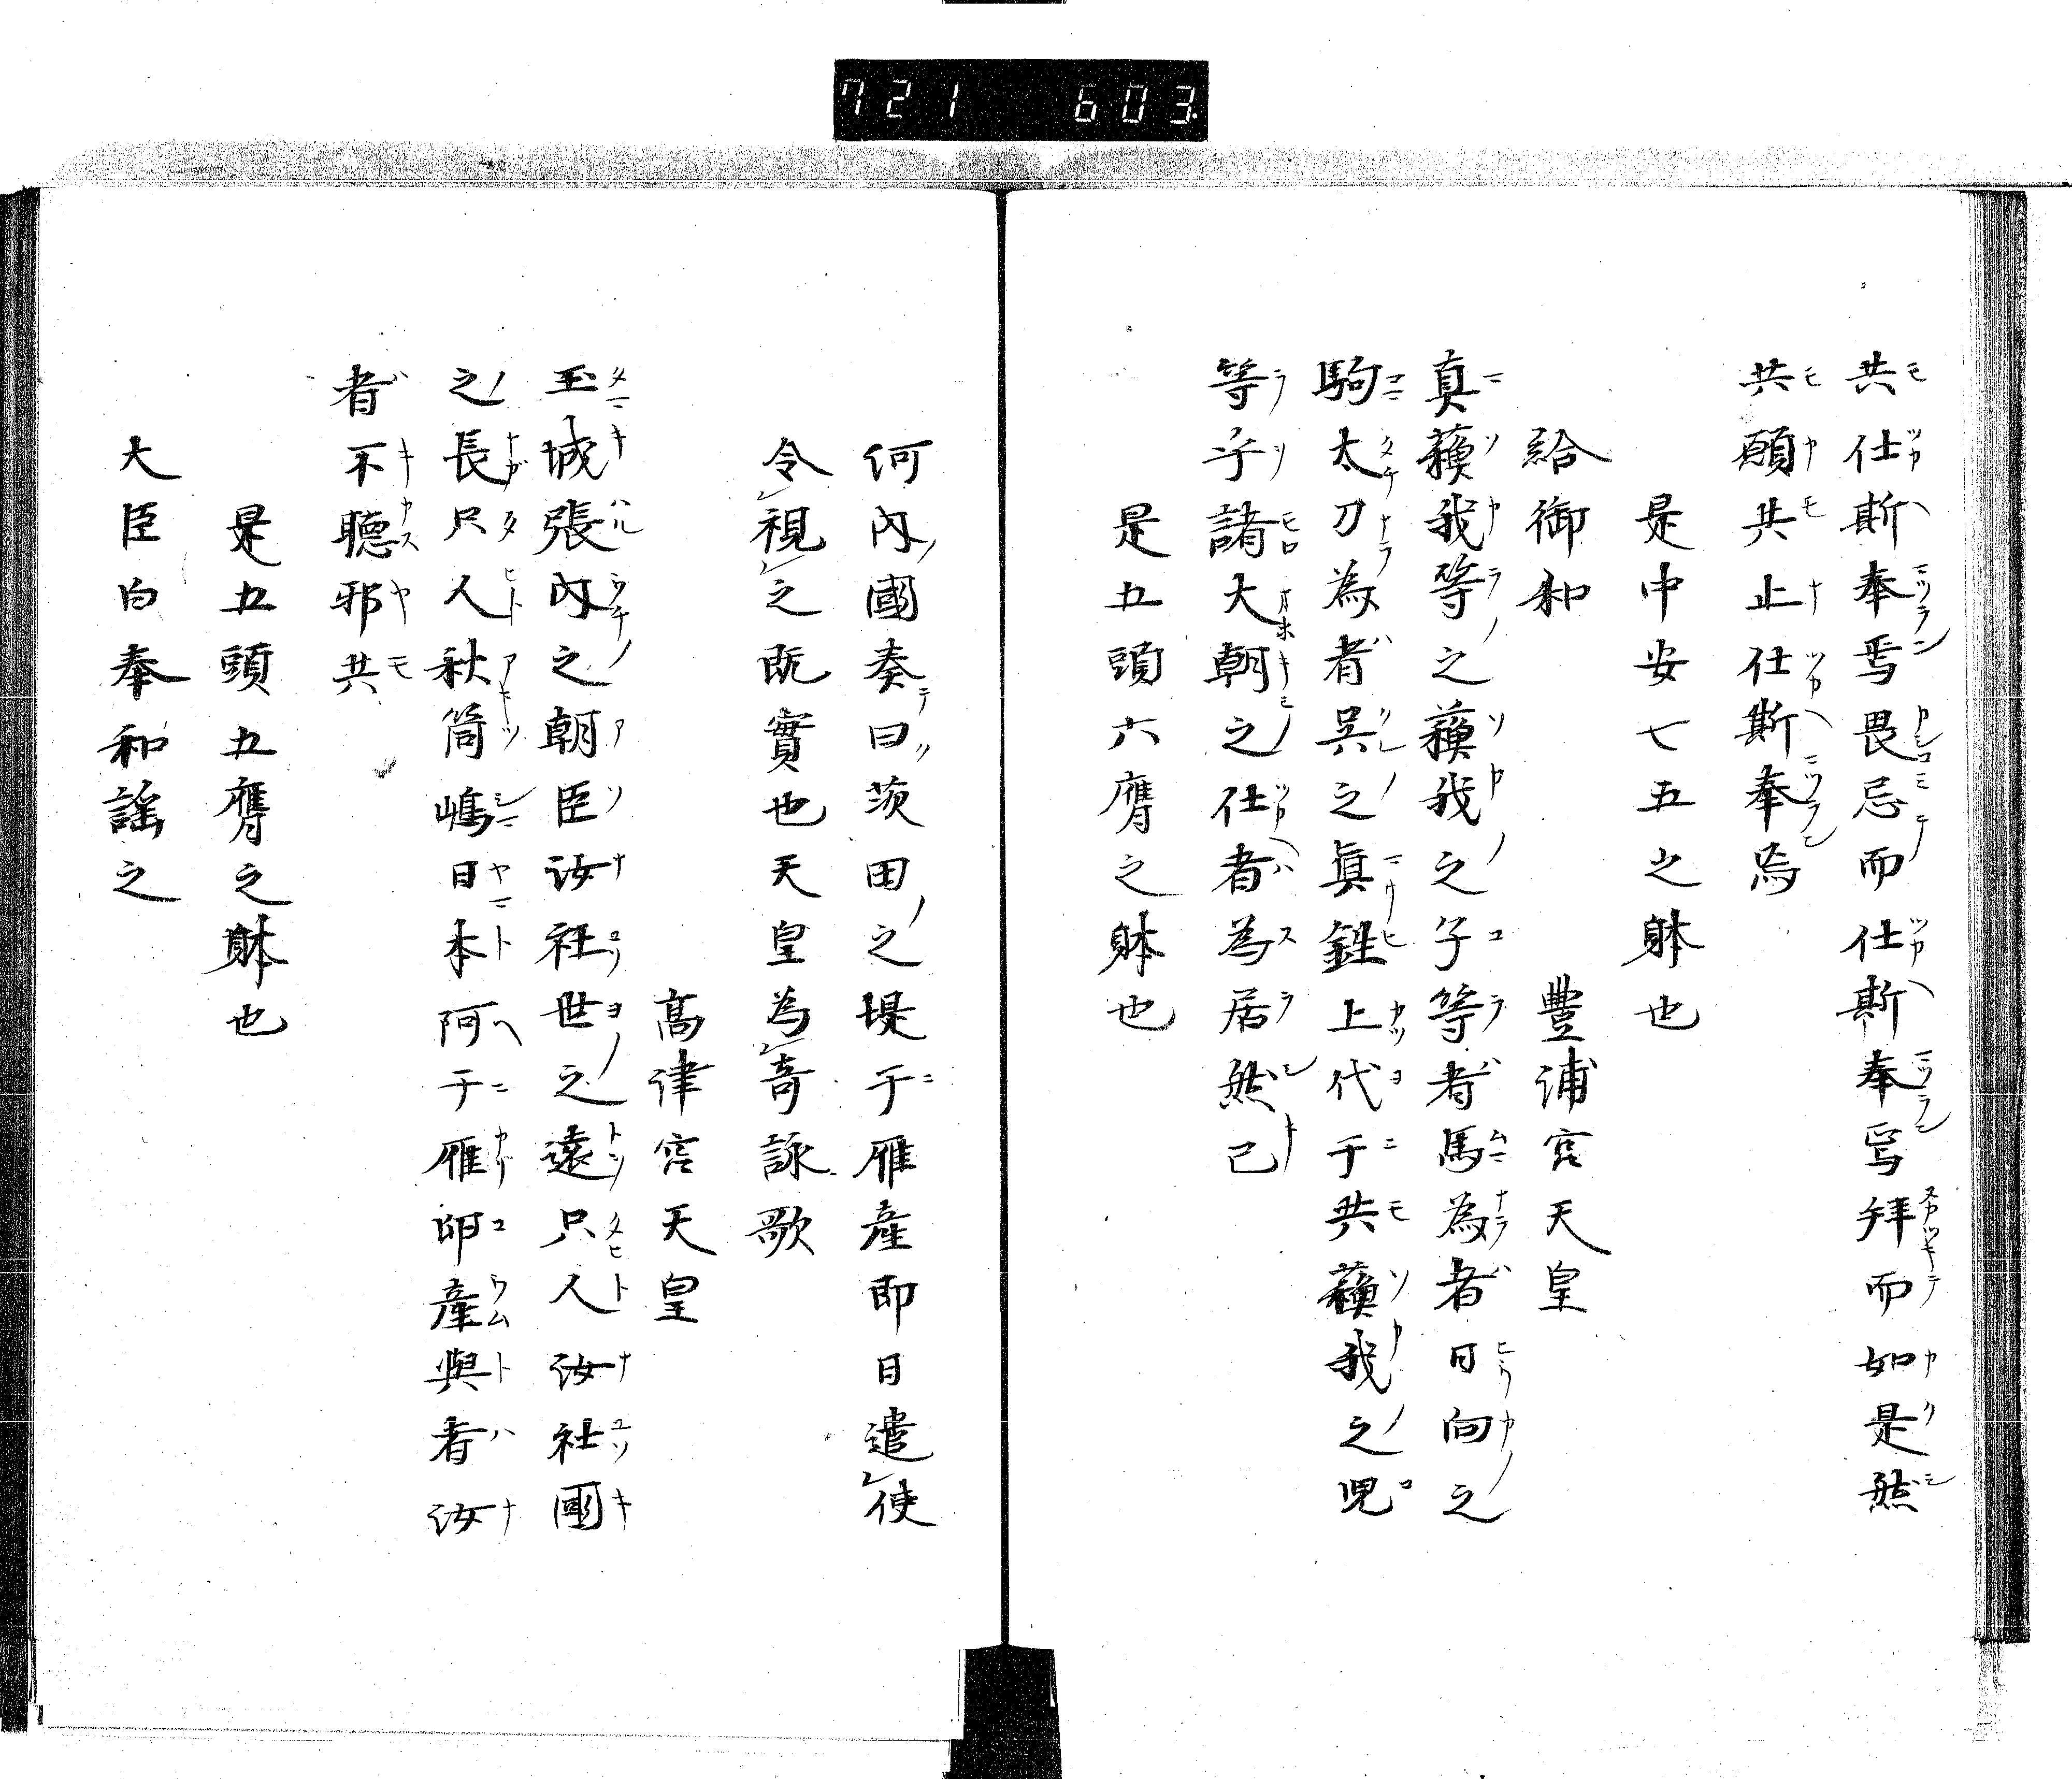 721 603.
共仕斯奉焉畏忌而仕斯奉写拜而如是然
共願共止仕斯奉焉
是中安七五之躰也
給御和 豐浦宮天皇
真蘓我等之蘓我之子等者馬為者日向之
駒太刀為者呉之真鉎上代于共蘓我之児
等乎諸大朝之仕者為居然己
是五頭六膺之躰也
何內國奏曰茨田之堤于雁產即日遣使
令視之既實也天皇為寄詠歌
高律宮天皇
玉城張內之朝臣汝社世之遠只人汝社國
之長只人秋筒嶋日本阿于雁卵產與者汝
者不聴邪共
是五頭五膺之躰也
大臣白奉和謡之